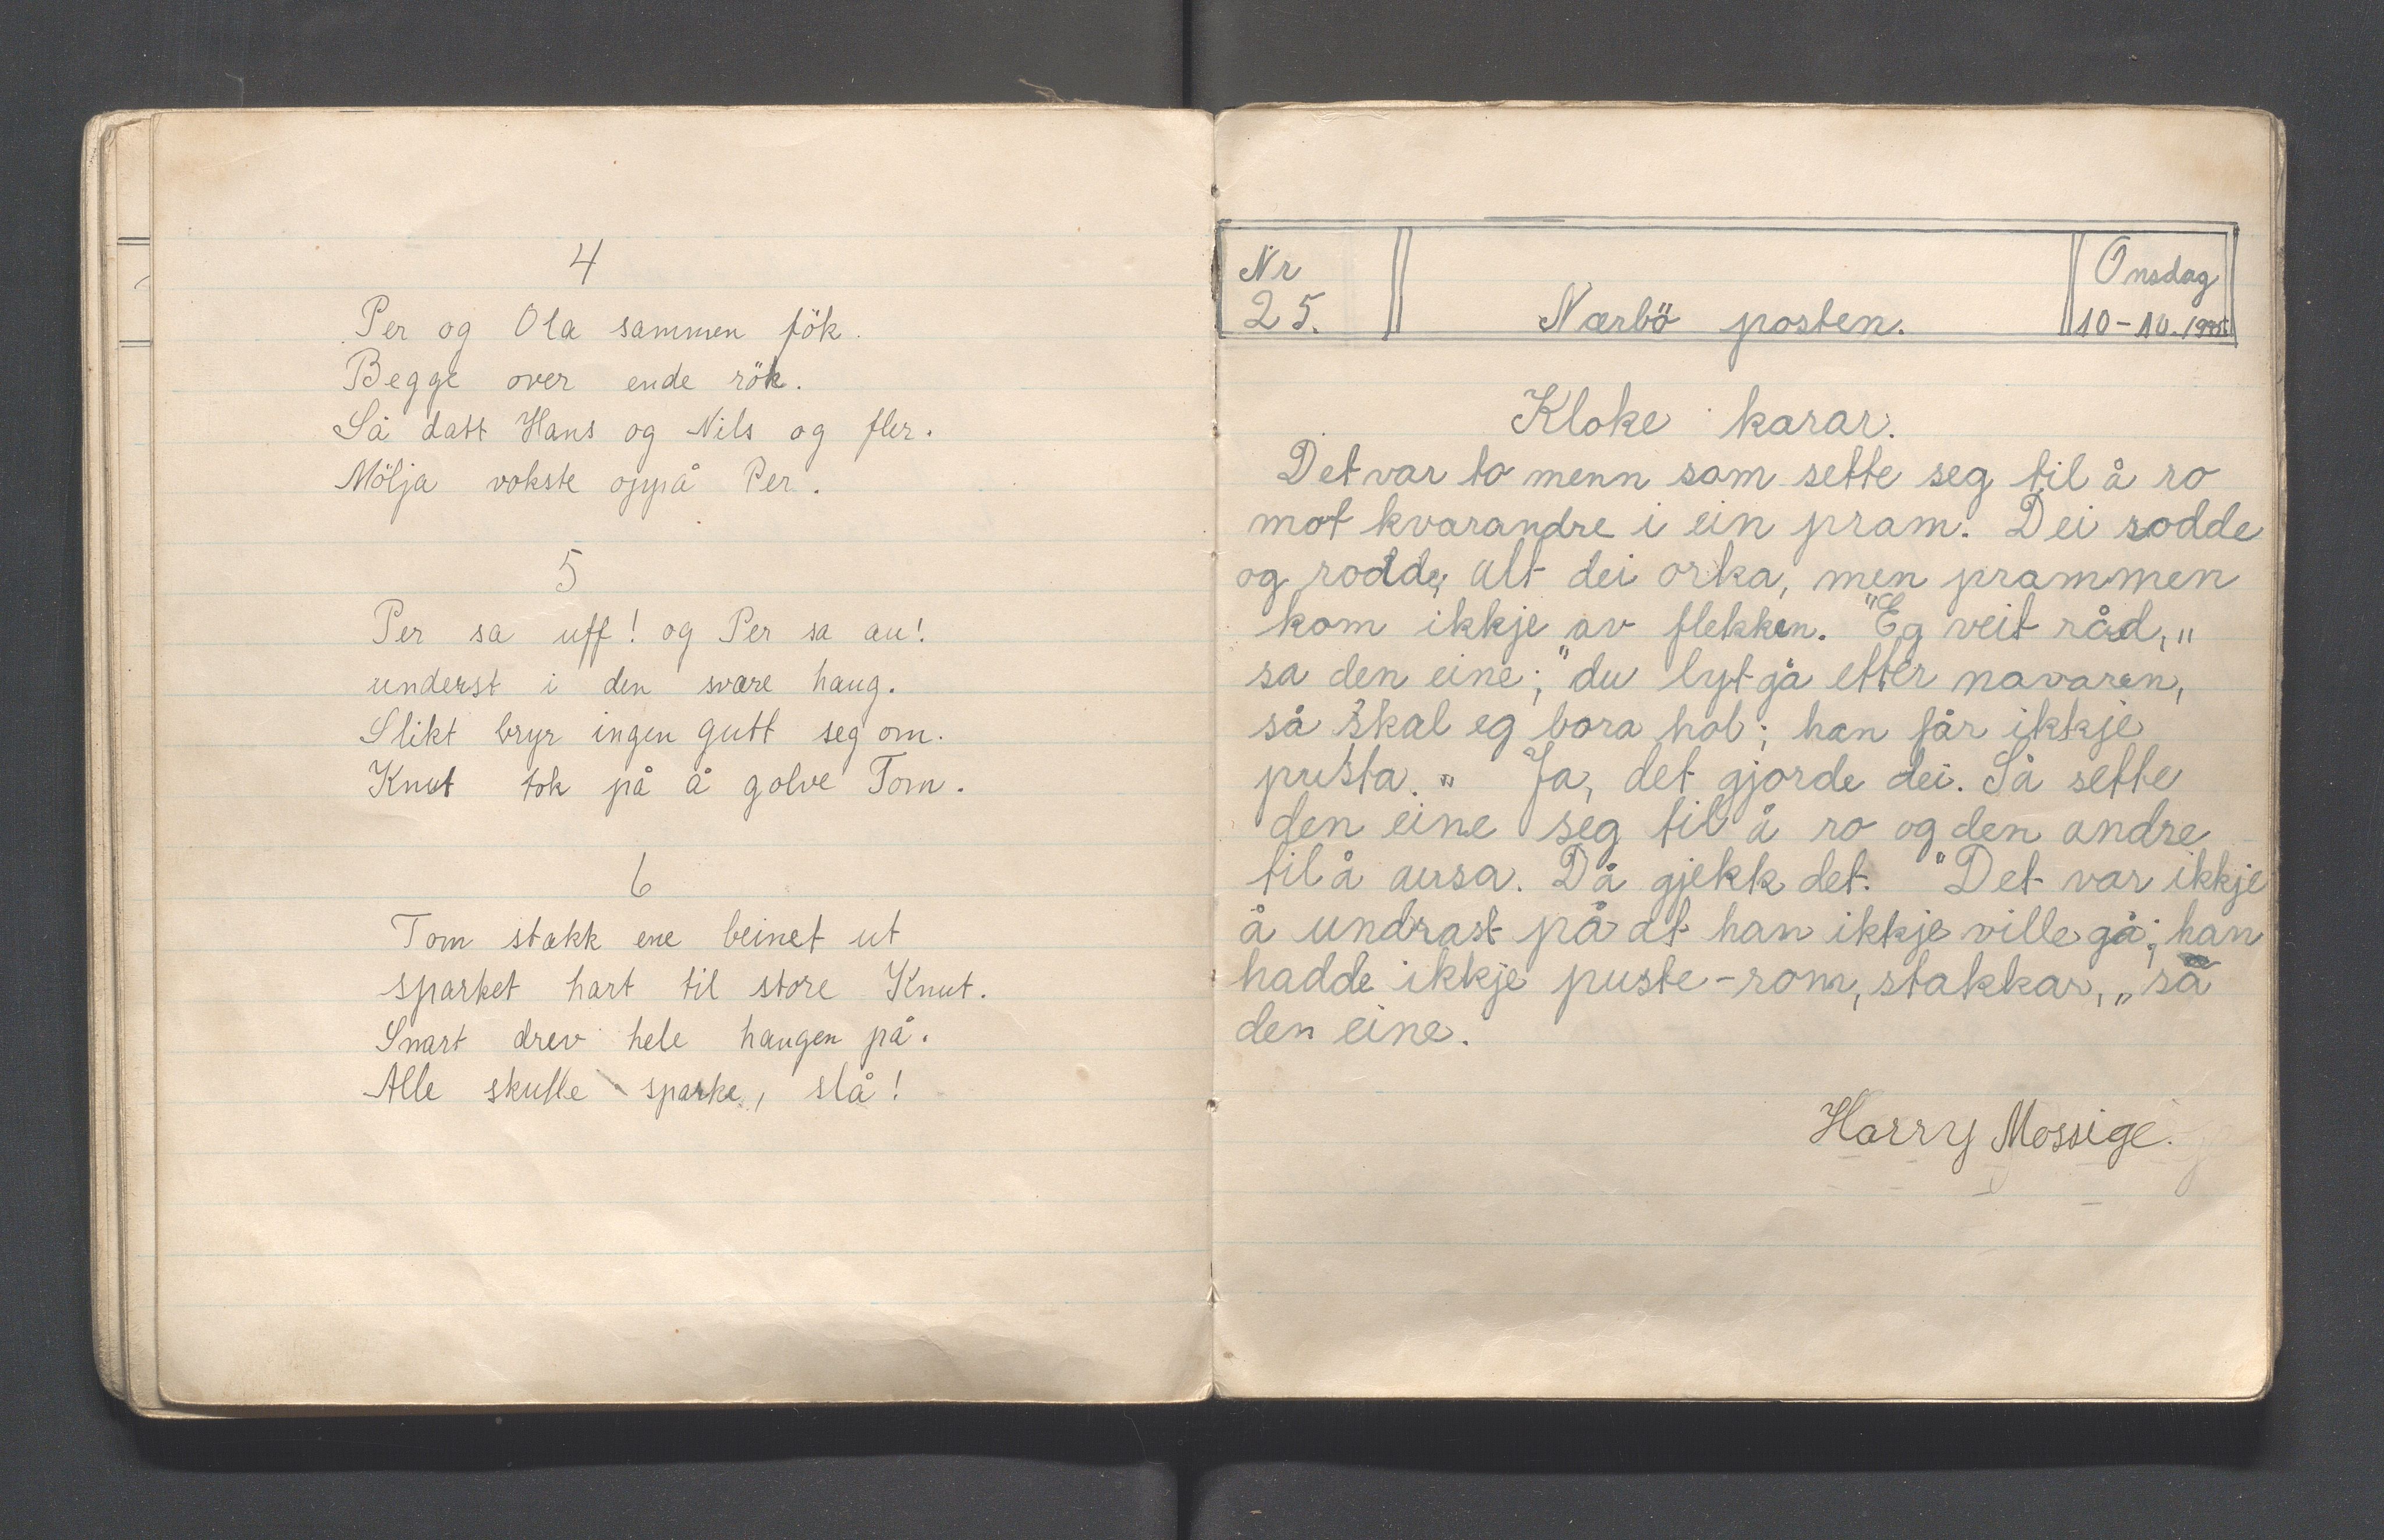 4
Per og Ola sammen fök.
Begge over ende rök.
Så datt Hans og Nils og fler.
Mölja vokste oppå Per.
5
Per sa uff! og Per sa au!
underst i den svære haug.
Slikt bryr ingen gutt seg om.
Knut tok på å golve Tom.
6
Tom stakk ene beinet ut
sparket hart til store Knut.
Snart drev hele haugen på.
Alle skulle sparke, slå!
Nr
25.
Nærbö posten.
Onsdag
10-10.
Kloke karar.
Det var to menn som sette seg til å ro
mot kvarandre i ein pram. Dei rodde
og rodde alt dei orka, men prammen
kom ikkje av flekken. "Eg veit råd,"
sa den eine; "du lyt gå etter navaren,
så skal eg bora hol; han får ikkje
pusta." Ja, det gjorde dei. Så sette
den eine seg til å ro og den andre
til å ausa. Då gjekk det. "Det var ikkje
å undrast på at han ikkje ville gå; han
hadde ikkje puste-rom, stakkar," sa
den eine.
Harry Mossige.